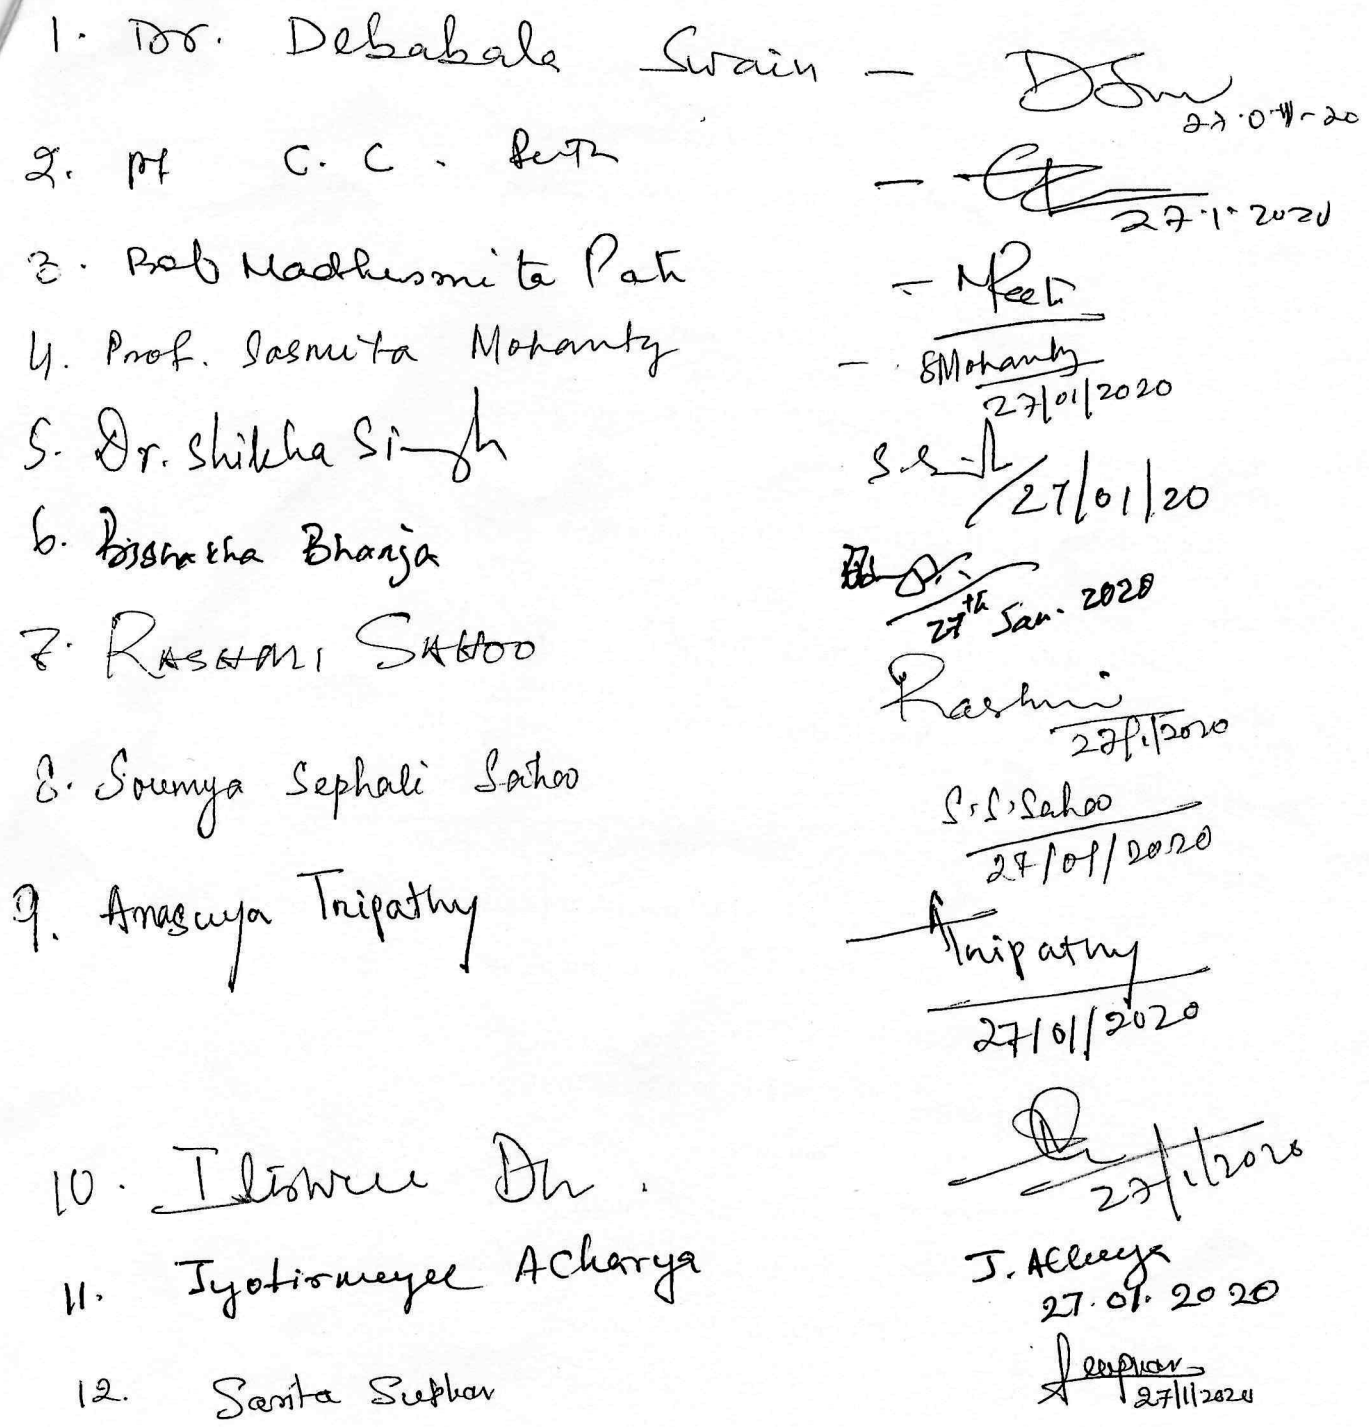 1. Dr. Debabala Swain - DSw
27.01-20
2. Pf C. C. Rath -
27.1.2020
3. Prof Madhusmita Pati - MPati
4. Prof. Sasmita Mohanty - SMohanty
27/01/2020
5. Dr. Shikha Singh S.Singh
27/01/20
6. Bishakha Bhanja
27th Jan. 2020
7. RASHMI SAHOO Rashmi
27/1/2020
8. Soumya Sephali Sahoo S.S.Sahoo
27/01/2020
9. Anasuya Tripathy ATripathy
27/01/2020
10. Iliswree
27/1/2020
11. Jyotirmayee Acharya J. Acharya
27.01.2020
12. Sarita
27/1/2020